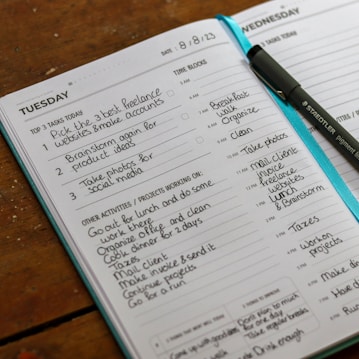 TUESDAY
DATE: 8/8/23
TOP 3 TASKS TODAY
1 Pick the 3 best freelance
websites & make accounts
2 Brainstorm again for
product ideas
3 Take photos for
social media
OTHER ACTIVITIES / PROJECTS WORKING ON:
Go out for lunch and do some
work there
Organize office and clean
Cook dinner for 2 days
Taxes
Mail client
Make invoice & send it
Continue projects
Go for a run
TIME BLOCKS
Breakfast
walk
Organize
clean
Take photos
mail client
invoice
freelance
websites
lunch
& Brainstorm
Taxes
work on
projects
3 THINGS THAT WENT WELL TODAY
3 THINGS TO IMPROVE
Come up with
Don't plan to much
for one day
Take regular breaks
Drink enough
WEDNESDAY
TASKS TODAY
STAEDTLER
pigment